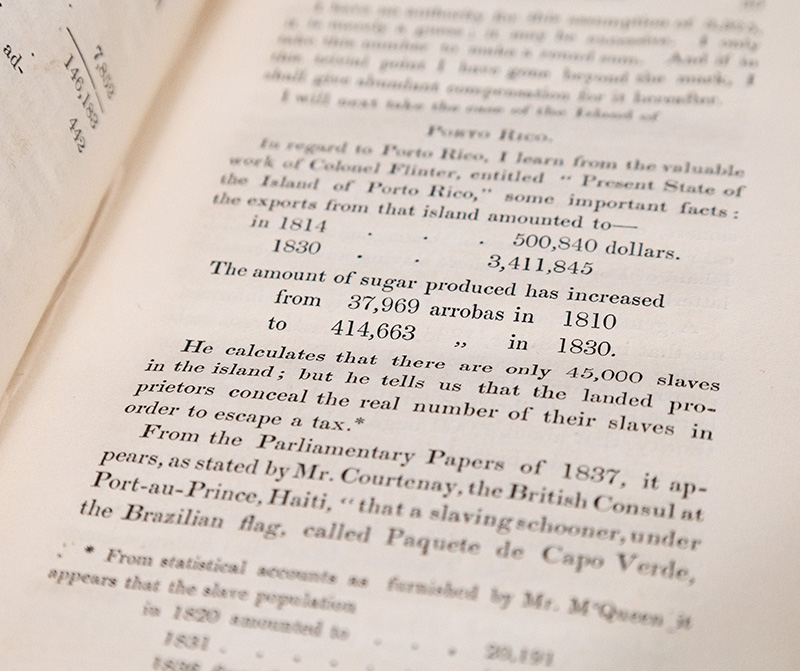 ad-
7,852
146,183
442
I have no authority for this assumption of
it is merely a guess; it may be excessive. I only
take this number to make a round sum. And if in
this trivial point I have gone beyond the mark, I
shall give abundant compensation for it hereafter.
I will next take the case of the Island of
PORTO RICO.
In regard to Porto Rico, I learn from the valuable
work of Colonel Flinter, entitled “ Present State of
the Island of Porto Rico,” some important facts :
the exports from that island amounted to—
in 1814 . . . 500,840 dollars.
1830 . . 3,411,845
The amount of sugar produced has increased
from 37,969 arrobas in 1810
to 414,663 ,, in 1830.
He calculates that there are only 45,000 slaves
in the island ; but he tells us that the landed pro-
prietors conceal the real number of their slaves in
order to escape a tax.*
From the Parliamentary Papers of 1837, it ap-
pears, as stated by Mr. Courtenay, the British Consul at
Port-au-Prince, Haiti, “that a slaving schooner, under
the Brazilian flag, called Paquete de Capo Verde,
* From statistical accounts as furnished by Mr. M‘Queen it
appears that the slave population
in 1820 amounted to . . . 20,191
1831 . . . . .